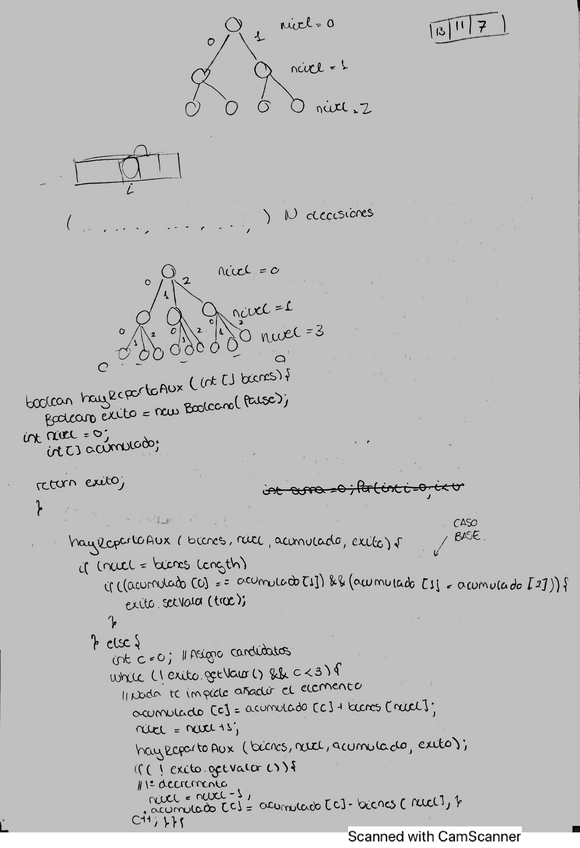 nivel = 0
0 1
13 11 7
nivel = 1
nivel = 2
i
( . . . . , . . . , . . , ) N decisiones
nivel = 0
0 1 2
nivel = 1
0 1 2 0 1 2 0 1 2
nivel = 3
boolean hayRepartoAux (int [] bienes) {
Booleano exito = new Booleano (false);
int nivel = 0;
int [] acumulado;
return exito;
}
hayRepartoAux ( bienes, nivel, acumulado, exito) {
CASO
BASE.
if (nivel = bienes.length)
if ((acumulado [0] == acumulado [1]) && (acumulado [1] = acumulado [2])) {
exito.setValor (true);
}
} else {
int c = 0; // Asigno candidatos
while (! exito.getValor () && c < 3) {
// Nada te impide añadir el elemento
acumulado [c] = acumulado [c] + bienes [nivel];
nivel = nivel + 1;
hayRepartoAux (bienes, nivel, acumulado, exito);
if ( ! exito.getValor ()) {
// 1º decremento
nivel = nivel - 1,
acumulado [c] = acumulado [c] - bienes [nivel], }
c++; } } }
Scanned with CamScanner